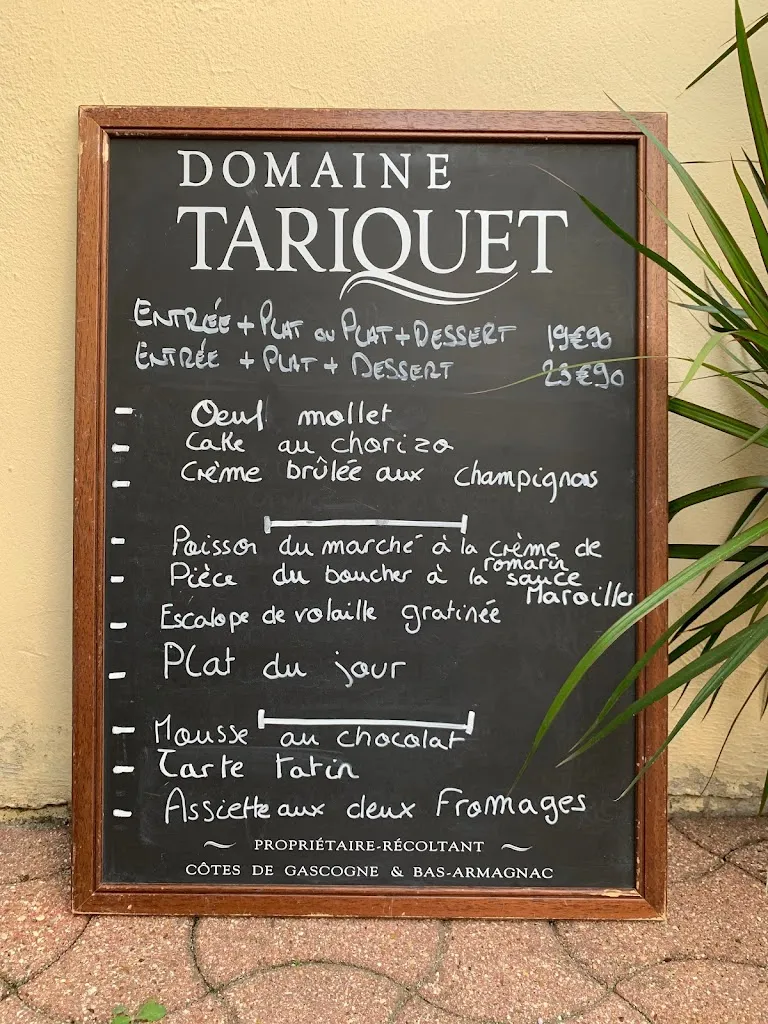 DOMAINE
TARIQUET
ENTRÉE + PLAT OU PLAT + DESSERT 19€90
ENTRÉE + PLAT + DESSERT 23€90
- Oeuf mollet
- Cake au chorizo
- Crème brûlée aux champignons
- Poisson du marché à la crème de
romarin
- Pièce du boucher à la sauce
Maroilles
- Escalope de volaille gratinée
- Plat du jour
- Mousse au chocolat
- Tarte tatin
- Assiette aux deux Fromages
~ PROPRIÉTAIRE-RÉCOLTANT ~
CÔTES DE GASCOGNE & BAS-ARMAGNAC